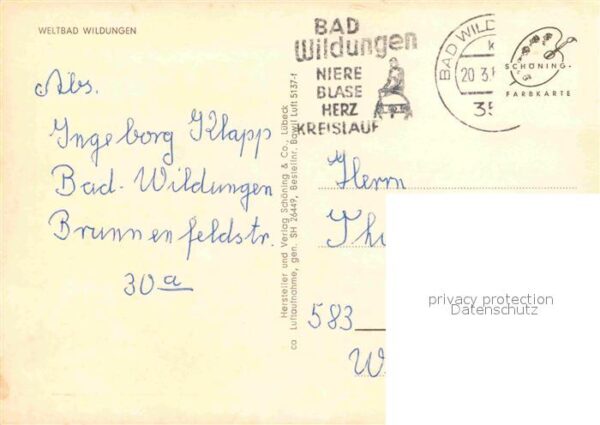 WELTBAD WILDUNGEN
Abs.
Ingeborg Klapp
Bad-Wildungen
Brunnenfeldstr.
30a
Hersteller und Verlag Schöning & Co., Lübeck
co Luftaufnahme, gen. SH 26449, Bestellnr. Bawil Luft 5137-f
BAD
Wildungen
NIERE
BLASE
HERZ
KREISLAUF
BAD WILD
20 3.
35
SCHÖNING-
FARBKARTE
Herrn
583
privacy protection
Datenschutz